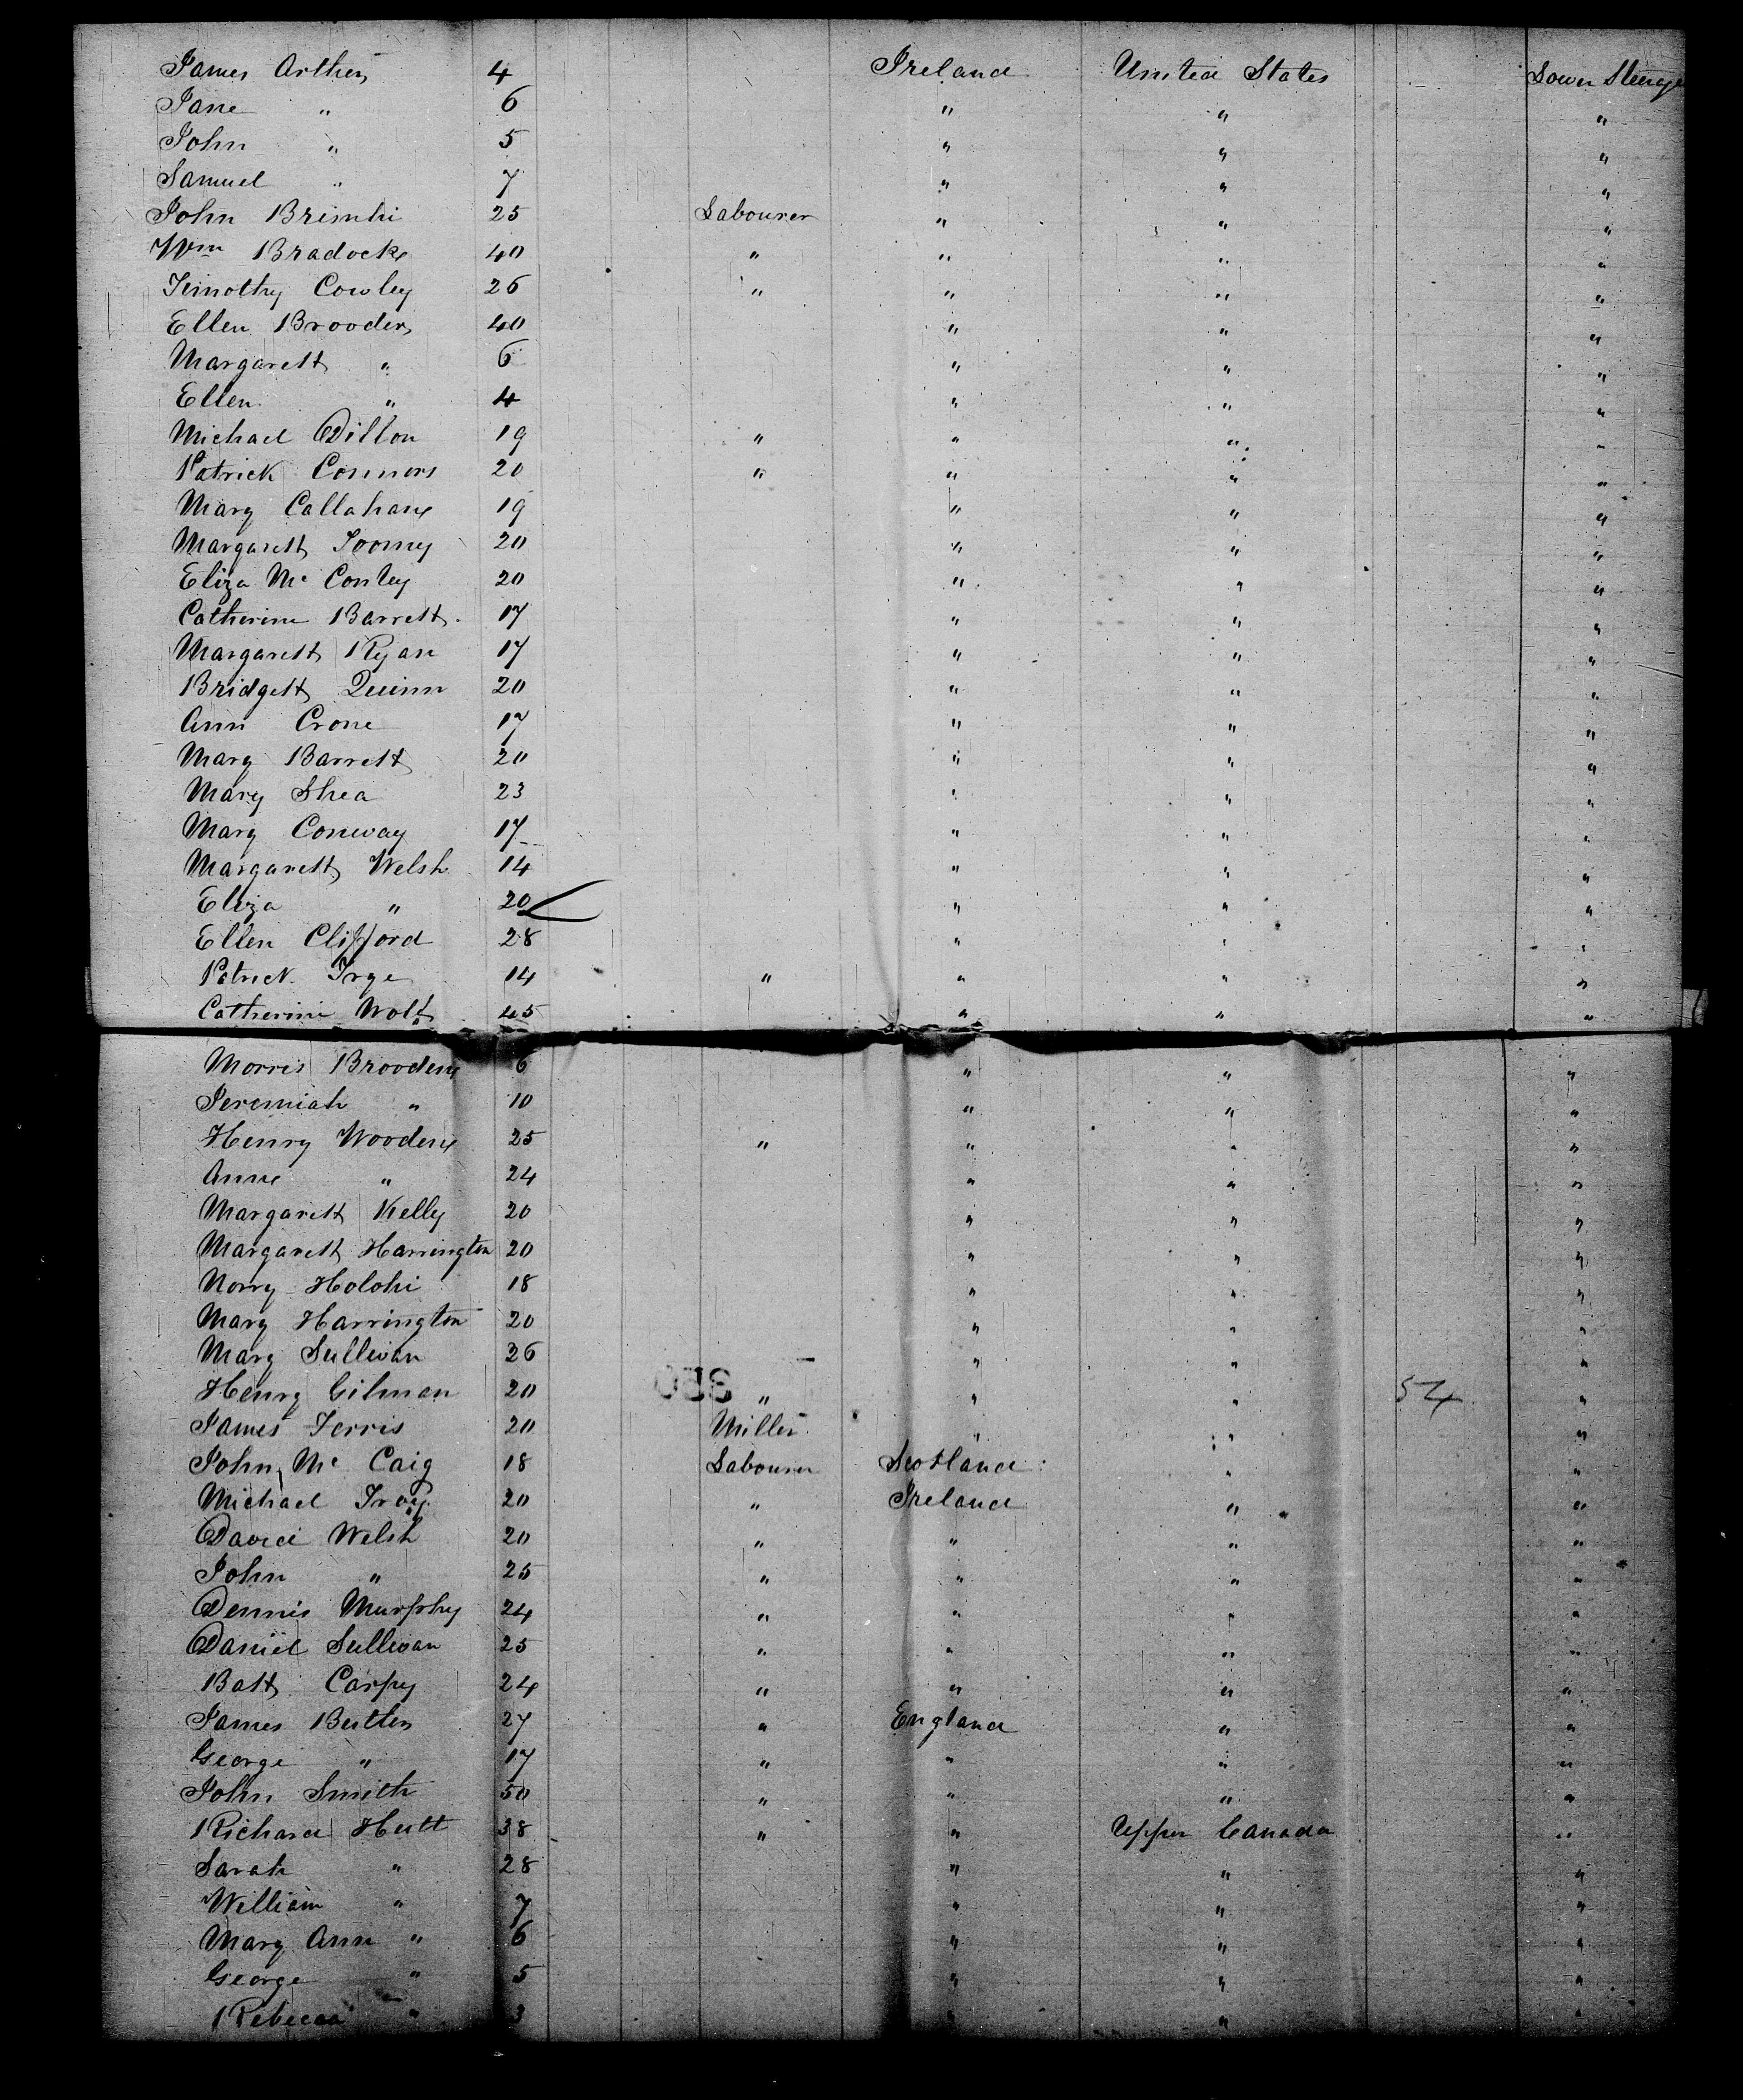 James Arthur 4 Ireland United States Lower Steerage
Jane " 6 " " "
John " 5 " " "
Samuel " 7 " " "
John 25 Labourer " " "
Wm Bradock 40 " " " "
Timothy Cowley 26 " " " "
Ellen Brooder 40 " " "
Margarett " 6 " " "
Ellen " 4 " " "
Michael Dillon 19 " " " "
Patrick Connors 20 " " " "
Mary Callahan 19 " " "
Margarett Toomy 20 " " "
Eliza Mc Conley 20 " " "
Catherine Barrett 17 " " "
Margarett Ryan 17 " " "
Bridgett Quinn 20 " " "
Ann Crone 17 " " "
Mary Barrett 20 " " "
Mary Shea 23 " " "
Mary Conway 17 " " "
Margarett Welsh 14 " " "
Eliza " 20 " " "
Ellen Clifford 28 " " "
Patrick 14 " " " "
Catherine Wolf 45 " " "
Morris Brooden 6 " " "
Jeremiah " 10 " " "
Henry Wooden 25 " " " "
Anne " 24 " " "
Margarett Kelly 20 " " "
Margarett Harrington 20 " " "
Norry Holohi 18 " " "
Mary Harrington 20 " " "
Mary Sullivan 26 " " "
Henry Gilman 20 " " " 54 "
James Ferris 20 Miller " " "
John Mc Caig 18 Labourer Scotland " "
Michael Troy 20 " Ireland " "
David Welsh 20 " " " "
John " 25 " " " "
Dennis Murphy 24 " " " "
Daniel Sullivan 25 " " " "
Batt Carpy 24 " " " "
James Butler 27 " England " "
George " 17 " " " "
John Smith 50 " " " "
Richard Hutt 38 " " Upper Canada "
Sarah " 28 " " "
William " 7 " " "
Mary Ann " 6 " " "
George " 5 " " "
Rebecca " 3 " " "